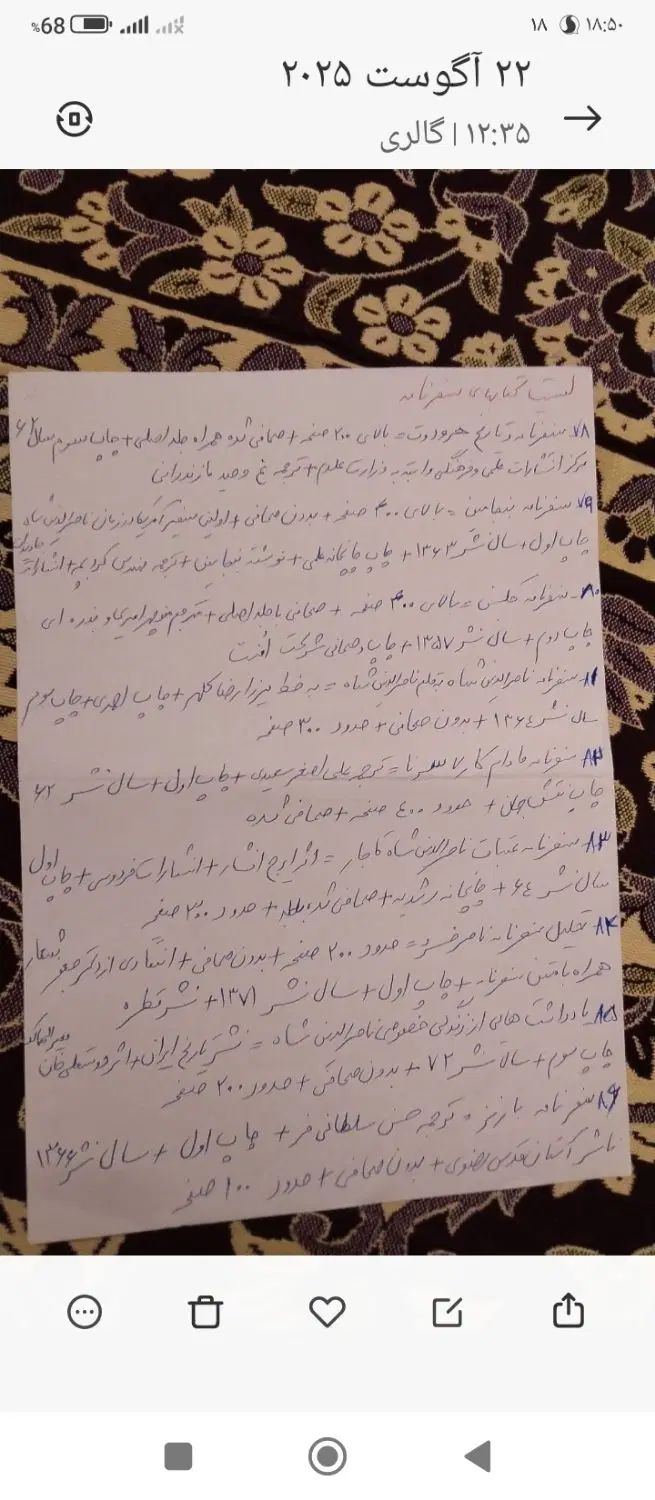 ۱۸:۵۰ ۱۸ %68
۲۲ آگوست ۲۰۲۵
۱۲:۳۵ | گالری
لیست کتابهای سفرنامه
۷۸ سفرنامه و تاریخ هرودوت = بالای ۲۰۰ صفحه + صحافی شده همراه جلد اصلی + چاپ سوم سال ۶۲
مرکز انتشارات علمی و فرهنگی وابسته به وزارت علوم + ترجمه ع وحید مازندرانی
۷۹ سفرنامه بنجامین = بالای ۴۰۰ صفحه + بدون صحافی + اولین سفیر آمریکا در زمان ناصرالدین شاه
چاپ اول + سال نشر ۱۳۶۳ + چاپ چاپخانه علمی + نوشته بنجامین + ترجمه مهندس کردبچه + انتشارات جاویدان
۸۰ سفرنامه = بالای ۴۰۰ صفحه + صحافی با جلد اصلی + مترجم منوچهر امیری و
چاپ دوم + سال نشر ۱۳۵۷ + چاپ و صحافی شرکت افست
۸۱ سفرنامه ناصرالدین شاه بقلم ناصرالدین شاه = به خط میرزا رضا کلهر + چاپ + چاپ سوم
سال نشر ۱۳۶۴ + بدون صحافی + حدود ۳۰۰ صفحه
۸۲ سفرنامه مادام کارلا سرنا = ترجمه علی اصغر سعیدی + چاپ اول + سال نشر ۶۲
چاپ نقش جهان + حدود ۴۰۰ صفحه + صحافی شده
۸۳ سفرنامه عتبات ناصرالدین شاه قاجار = اثر ایرج افشار + انتشارات فردوسی + چاپ اول
سال نشر ۶۴ + چاپخانه رشدیه + صحافی شده + حدود ۳۰۰ صفحه
۸۴ تحلیل سفرنامه ناصرخسرو = حدود ۲۰۰ صفحه + بدون صحافی + انتقادی از دکتر جعفر شعار
همراه با متن سفرنامه + چاپ اول + سال نشر ۱۳۷۱ + نشر قطره
۸۵ یادداشت هایی از زندگی خصوصی ناصرالدین شاه = نشر تاریخ ایران + اثر دوستعلی خان معیرالممالک
چاپ سوم + سال نشر ۷۲ + بدون صحافی + حدود ۲۰۰ صفحه
۸۶ سفرنامه بارنز = ترجمه حسن سلطانی فر + چاپ اول + سال نشر ۱۳۶۶
ناشر آستان قدس رضوی + بدون صحافی + حدود ۱۰۰ صفحه